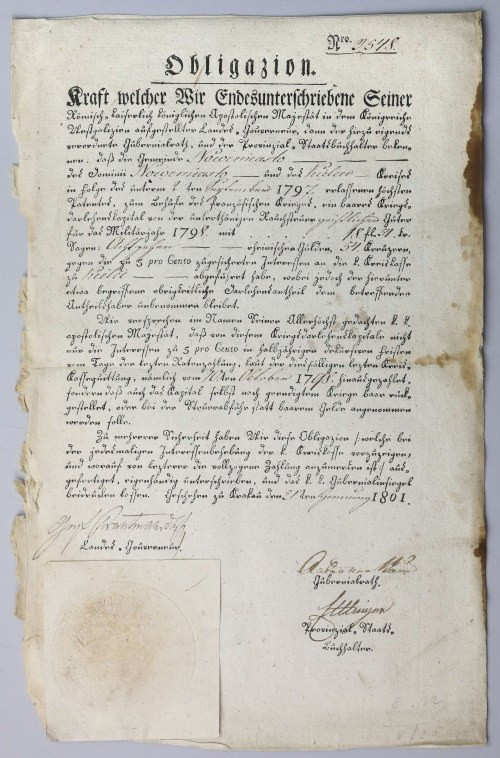 Nro. 9548.
Obligazion.
Kraft welcher Wir Endesunterschriebene Seiner
Römisch-kaiserlich königlichen Apostolischen Majestät in dem Königreiche
Westgalizien aufgestellter Landes-Gouverneur, dann der hiezu eigends
verordnete Gubernialrath, und der Provinzial-Staatsbuchhalter beken-
nen: daß die Gemeinde Nowemiasto
des Dominii Nowemiasto und des Kielcer Kreises
in Folge des unterm ten September 1797. erlassenen höchsten
Patentes, zum Behufe des Französischen Krieges, ein baares Kriegs-
darlehenskapital von der unterthänigen Rauchsteuer geistlicher Güter
für das Militärjahr 1798. mit 18 fl. 54 kr.
Sagen: Achtzehen rheinischen Gulden, 54 Kreuzern,
gegen der zu 5 pro Cento zugesicherten Interessen an die k. Kreiskasse
zu Kielce abgeführt habe, wobei jedoch der hierunter
etwa begriffene obrigkeitliche Darlehensantheil dem betreffenden
Antheilhaber unbenommen bleibet.
Wir versprechen im Namen Seiner Allerhöchst gedachten k. k.
apostolischen Majestät, daß von diesem Kriegsdarlehenskapitale nicht
nur die Interessen zu 5 pro Cento in halbjährigen dekursiven Fristen
vom Tage der lezten Ratenzahlung, laut der diesfälligen lezten Kreis-
Kassequittung, nämlich vom ten Oktober 1798. hinausgezahlet,
sondern daß auch das Kapital selbst nach geendigtem Kriege baar rück-
gestellet, oder bei der Steuerabfuhr statt baaren Gelde angenommen
werden solle.
Zu mehrerer Sicherheit haben Wir diese Obligazion (welche bei
der jedesmaligen Interessenbehebung der k. Kreiskasse vorzuzeigen,
und worauf von lezterer die vollzogene Zahlung anzumerken ist) aus-
gefertiget, eigenhändig unterschrieben, und das k. k. Gubernialinsiegel
beidrucken lassen. Geschehen zu Krakau den 1801.
Landes-Gouverneur.
Gubernialrath.
Provinzial-Staats-
Buchhalter.